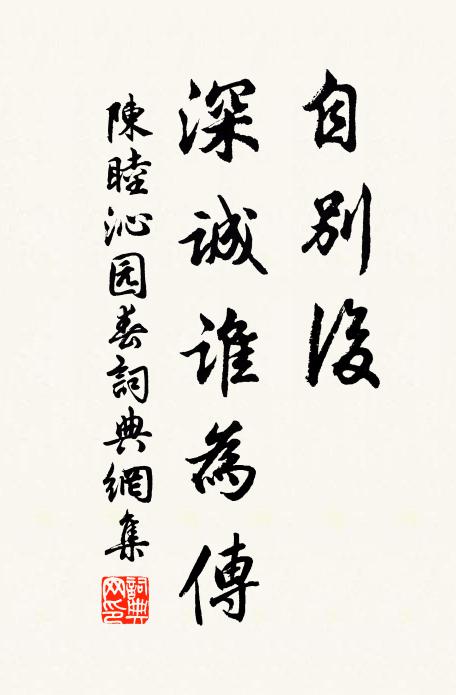 自别後
深誠誰為傳
陳睦沁园春詞典網集
詞典网印